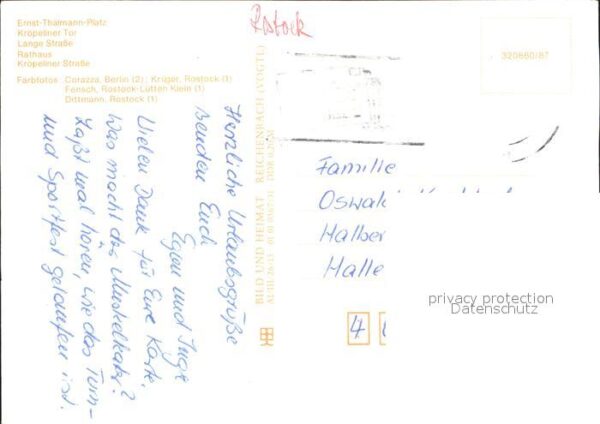 Ernst-Thälmann-Platz
Kröpeliner Tor
Lange Straße
Rathaus
Kröpeliner Straße
Farbfotos: Corazza, Berlin (2); Krüger, Rostock (1)
Fensch, Rostock-Lütten Klein (1)
Dittmann, Rostock (1)
Rostock
320860/87
BILD UND HEIMAT REICHENBACH (VOGTL)
A1/III/26-13 01 01 0367/31 DDR 0,20 M
Herzliche Urlaubsgrüße
senden Euch
Egon und Inge
Vielen Dank für Eure Karte.
Was macht das Muskelkater?
Laßt mal hören, wie das Turn-
und Sportfest gelaufen ist.
Familie
Oswald
Halber
Halle
4
privacy protection
Datenschutz